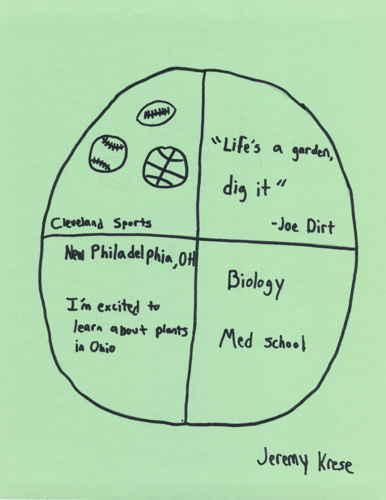 Cleveland Sports
"Life's a garden,
dig it"
-Joe Dirt
New Philadelphia, OH
I'm excited to
learn about plants
in Ohio
Biology
Med school
Jeremy Krese